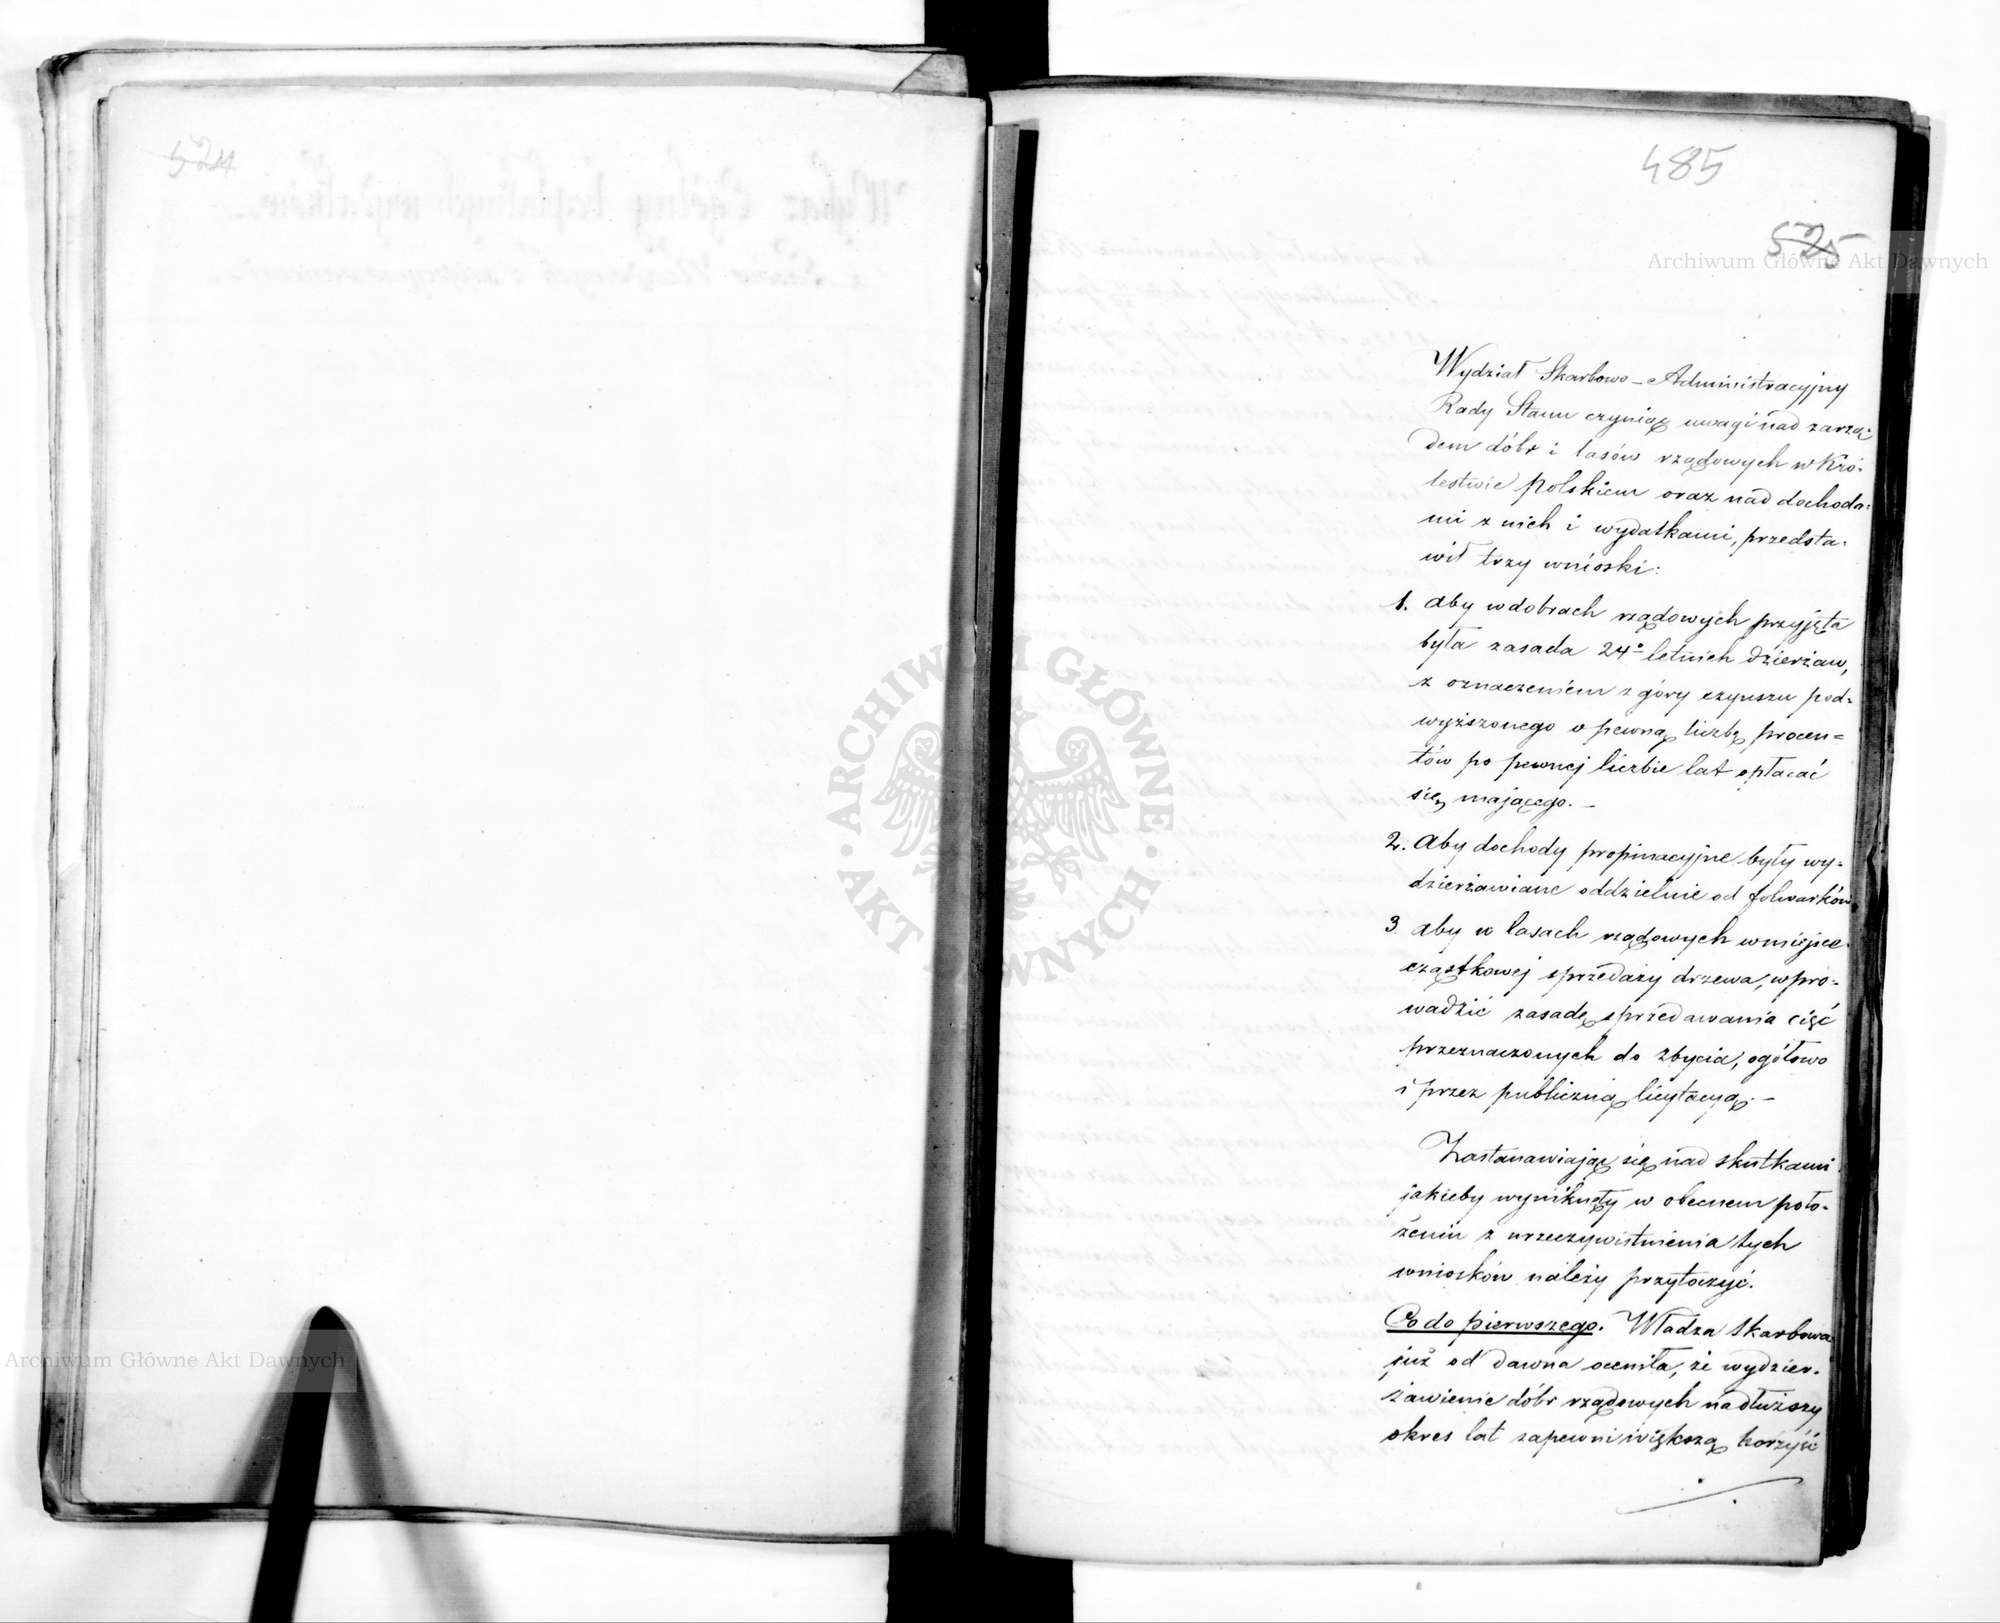 524
485
525
Wydział Skarbowo-Administracyjny
Rady Stanu czyniąc uwagi nad zarzą-
dem dóbr i lasów rządowych w Kró-
lestwie polskiem oraz nad dochoda-
mi z nich i wydatkami, przedsta-
wił trzy wnioski:
1. aby w dobrach rządowych przyjęta
była zasada 24o letnich dzierżaw,
z oznaczeniem z góry czynszu pod-
wyższonego o pewną liczbę procen-
tów po pewnej liczbie lat opłacać
się mającego. -
2. Aby dochody propinacyjne były wy-
dzierżawiane oddzielnie od folwarków
3. aby w lasach rządowych w miejsce
cząstkowej sprzedaży drzewa, wpro-
wadzić zasadę sprzedawania cięć
przeznaczonych do zbycia, ogółowo
i przez publiczną licytacyą. -
Zastanawiając się nad skutkami
jakieby wyniknęły w obecnem poło-
żeniu z urzeczywistnienia tych
wniosków należy przytoczyć.
Co do pierwszego. Władza skarbowa
już od dawna oceniła, że wydzier-
żawienie dóbr rządowych na dłuższy
okres lat zapewni większą korzyść
Archiwum Główne Akt Dawnych
Archiwum Główne Akt Dawnych
ARCHIWUM GŁÓWNE AKT DAWNYCH